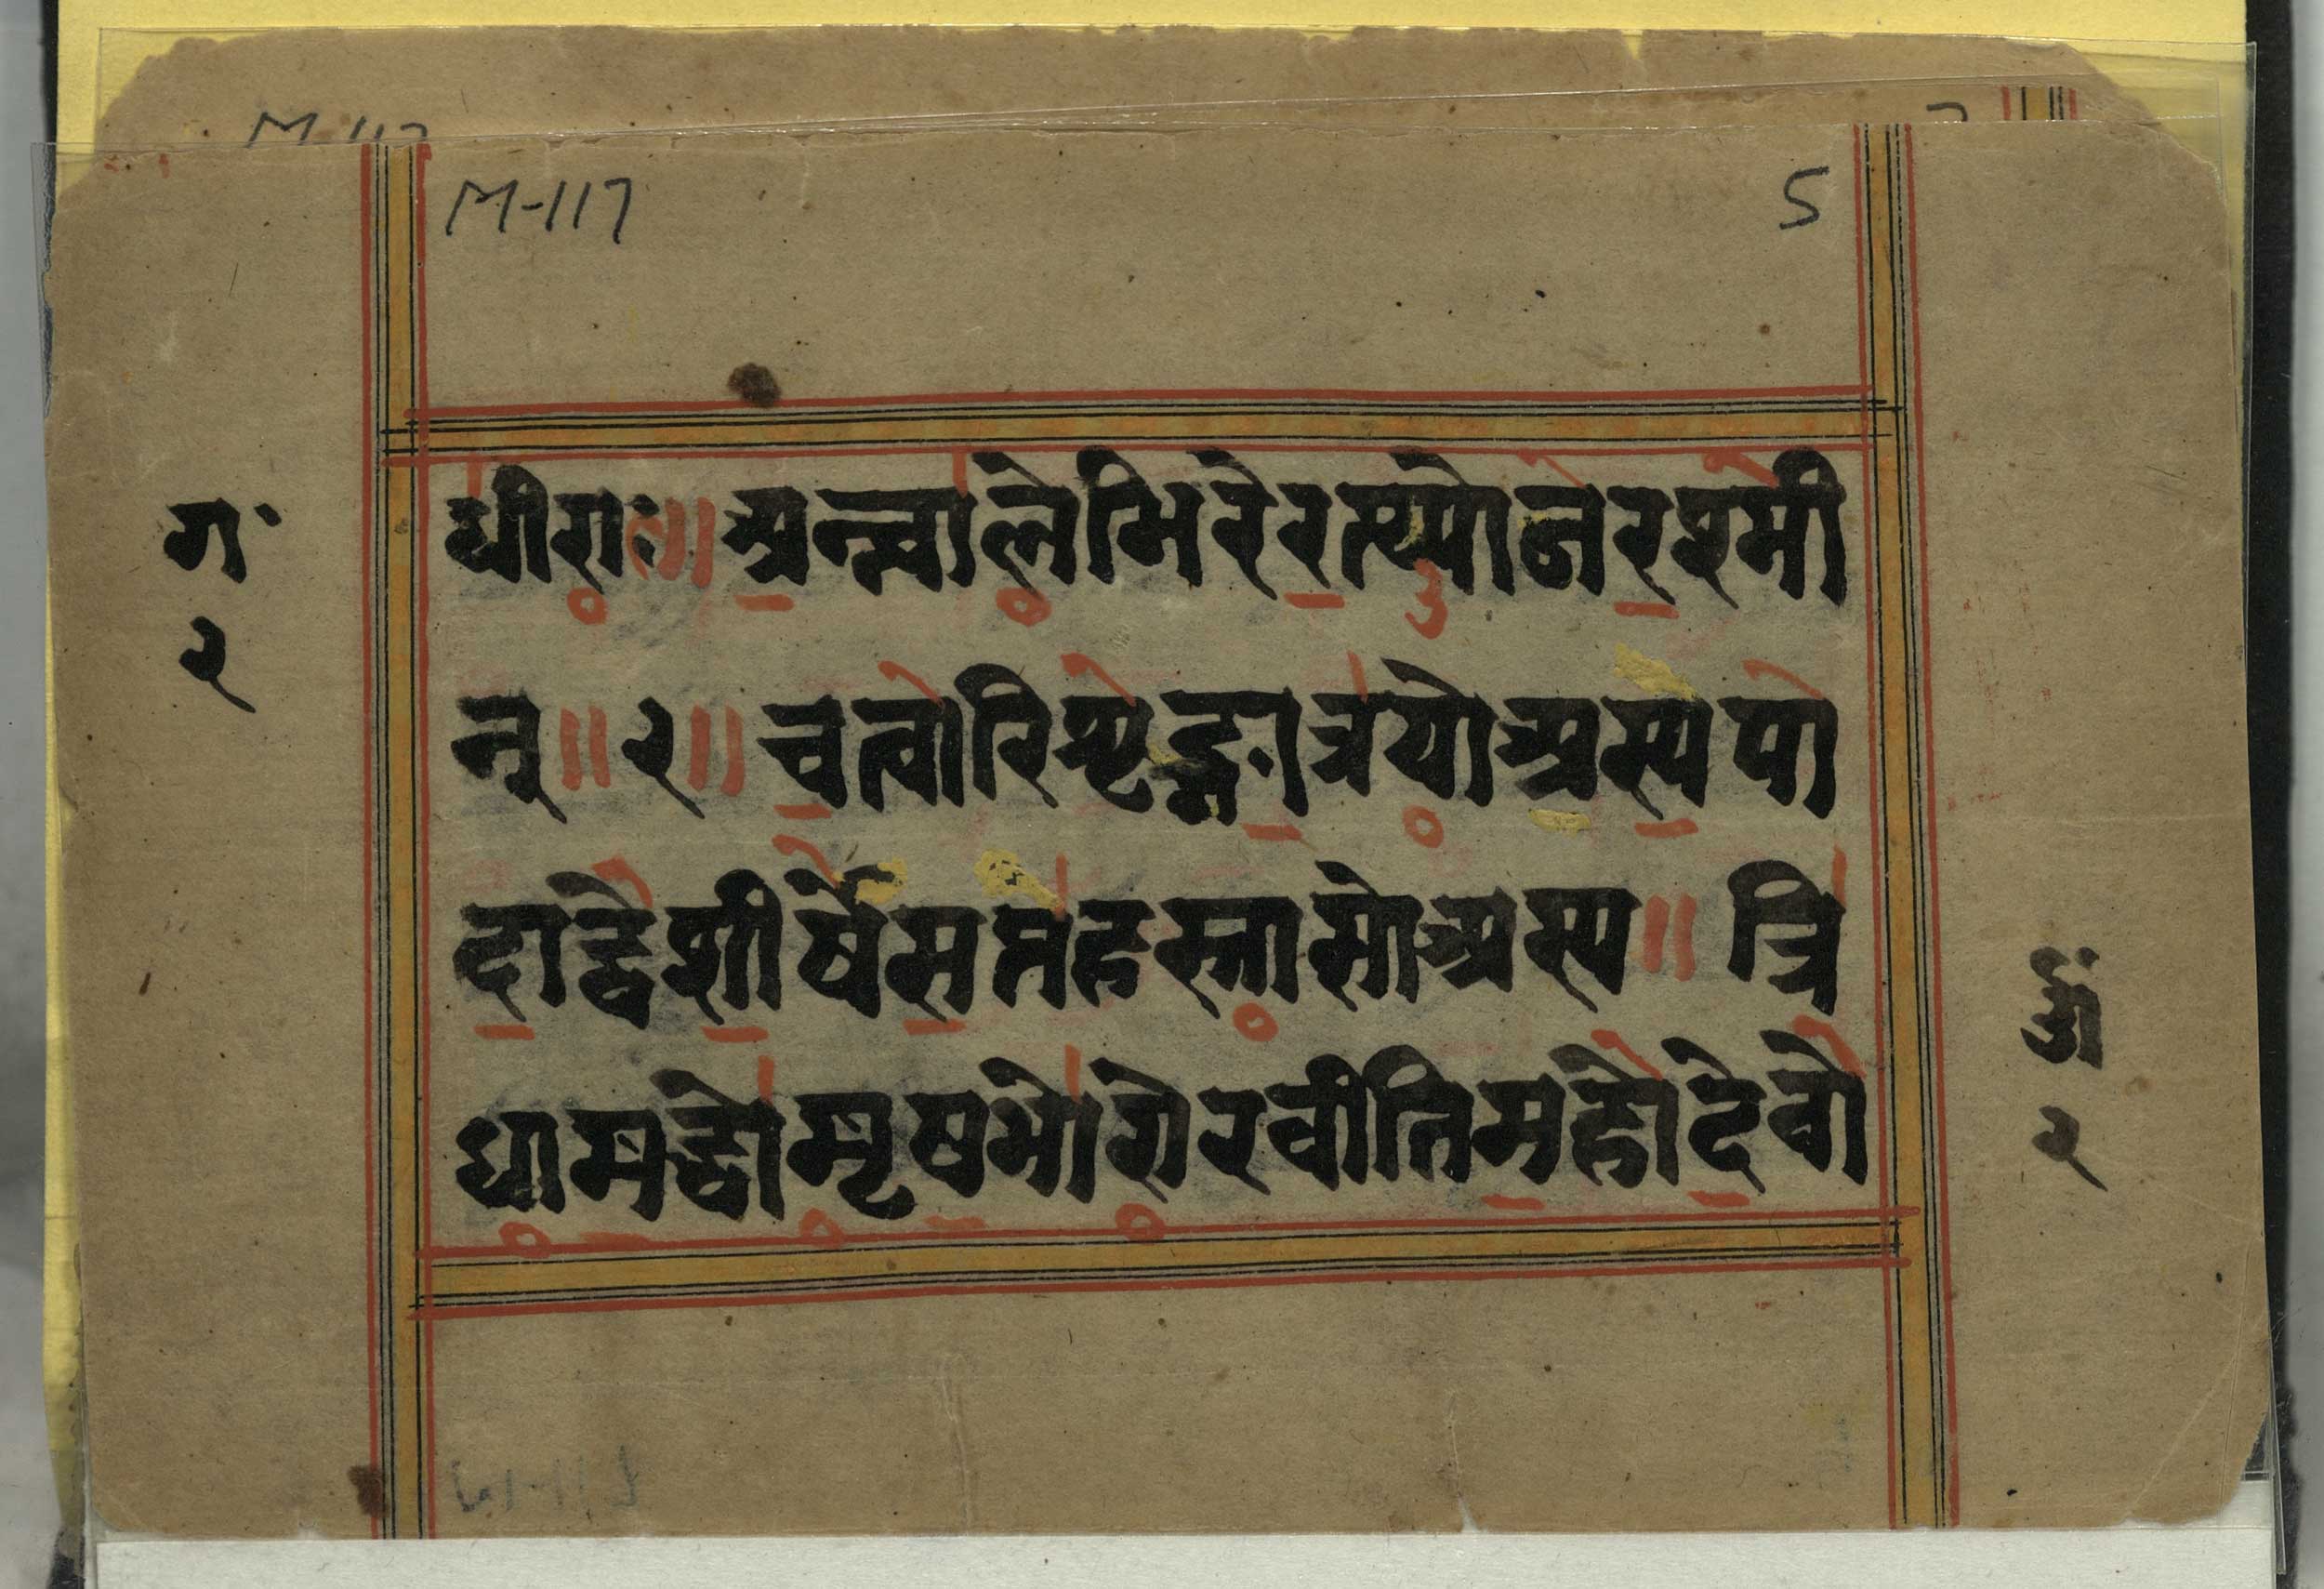 M-117
5
ग॰
२
धीराः॥ अन्वालेभिरेरम्प्योजेरश्मी
न्॥२॥चत्वारिशृङ्गात्रयोअस्यपा
दाद्वेशीर्षेसप्तहस्तासोअस्य॥त्रि
धामबद्धोमृषभोरोरवीतिमहोदेवो
२